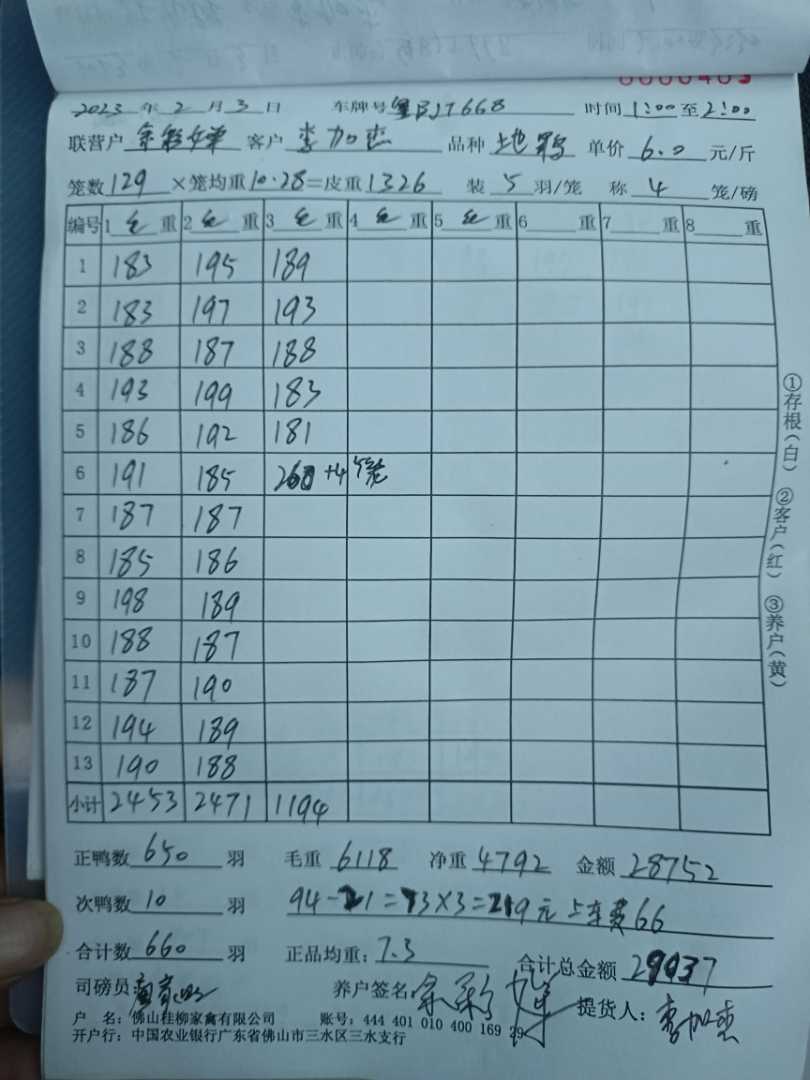 2023 年 2 月 3 日 车牌号 粤BJT668 时间 1:00 至 2:00
联营户 余彩婵 客户 李加杰 品种 地鸭 单价 6.0 元/斤
笼数 129 ×笼均重 10.28 =皮重 1326 装 5 羽/笼 称 4 笼/磅
编号 1 毛 重 2 毛 重 3 毛 重 4 毛 重 5 毛 重 6 重 7 重 8 重
1 183 195 189
2 183 197 193
3 188 187 188
4 193 199 183
5 186 192 181
6 191 185 260 +4笼
7 187 187
8 185 186
9 198 189
10 188 187
11 187 190
12 194 189
13 190 188
小计 2453 2471 1194
正鸭数 650 羽 毛重 6118 净重 4792 金额 28752
次鸭数 10 羽 94-21=73×3=219元 上车费66
合计数 660 羽 正品均重: 7.3 合计总金额 29037
司磅员 养户签名 余彩婵 提货人: 李加杰
户 名: 佛山桂柳家禽有限公司 账号: 444 401 010 400 169 29
开户行: 中国农业银行广东省佛山市三水区三水支行
①存根(白) ②客户(红) ③养户(黄)